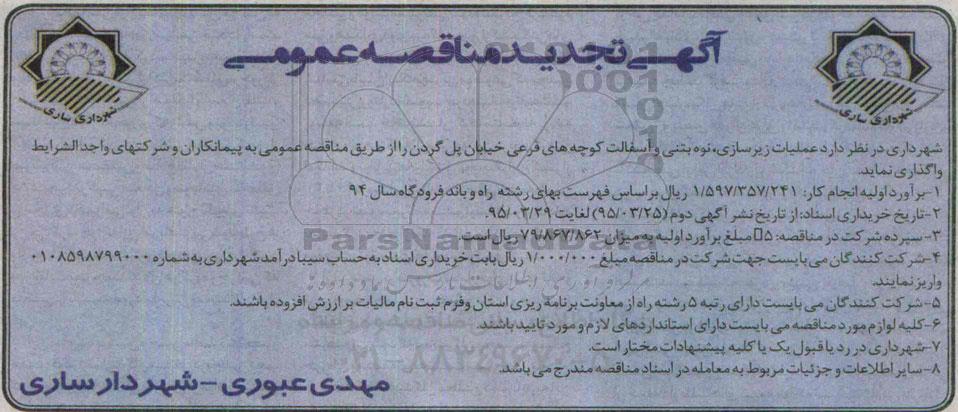 آگهی تجدید مناقصه عمومی
شهرداری ساری
شهرداری ساری
شهرداری در نظر دارد عملیات زیرسازی، نوه بتنی و آسفالت کوچه های فرعی خیابان پل گردن را از طریق مناقصه عمومی به پیمانکاران و شرکتهای واجد الشرایط
واگذاری نماید.
۱-برآورد اولیه انجام کار: ۱/۵۹۷/۳۵۷/۲۴۱ ریال براساس فهرست بهای رشته راه و باند فرودگاه سال ۹۴
۲-تاریخ خریداری اسناد: از تاریخ نشر آگهی دوم (۹۵/۰۳/۲۵) لغایت ۹۵/۰۳/۲۹.
۳-سپرده شرکت در مناقصه: ۵ مبلغ برآورد اولیه به میزان ۷۹/۸۶۷/۸۶۲ ریال است.
۴-شرکت کنندگان می بایست جهت شرکت در مناقصه مبلغ ۱/۰۰۰/۰۰۰ ریال بابت خریداری اسناد به حساب سیبا درآمد شهرداری به شماره ۰۱۰۸۵۹۸۷۹۹۰۰۰
واریز نمایند.
۵-شرکت کنندگان می بایست دارای رتبه ۵ رشته راه از معاونت برنامه ریزی استان و فرم ثبت نام مالیات بر ارزش افزوده باشند.
۶-کلیه لوازم مورد مناقصه می بایست دارای استانداردهای لازم و مورد تایید باشند.
۷-شهرداری در رد یا قبول یک یا کلیه پیشنهادات مختار است.
۸-سایر اطلاعات و جزئیات مربوط به معامله در اسناد مناقصه مندرج می باشد.
مهدی عبوری -شهردار ساری
ParsNamadData